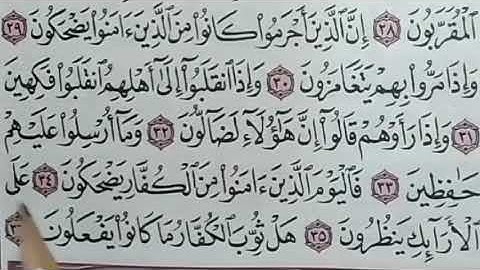 ٱلْمُقَرَّبُونَ ٢٨ إِنَّ ٱلَّذِينَ أَجْرَمُوا۟ كَانُوا۟ مِنَ ٱلَّذِينَ ءَامَنُوا۟ يَضْحَكُونَ ٢٩
وَإِذَا مَرُّوا۟ بِهِمْ يَتَغَامَزُونَ ٣٠ وَإِذَا ٱنقَلَبُوٓا۟ إِلَىٰٓ أَهْلِهِمُ ٱنقَلَبُوا۟ فَكِهِينَ
٣١ وَإِذَا رَأَوْهُمْ قَالُوٓا۟ إِنَّ هَـٰٓؤُلَآءِ لَضَآلُّونَ ٣٢ وَمَآ أُرْسِلُوا۟ عَلَيْهِمْ
حَـٰفِظِينَ ٣٣ فَٱلْيَوْمَ ٱلَّذِينَ ءَامَنُوا۟ مِنَ ٱلْكُفَّارِ يَضْحَكُونَ ٣٤ عَلَى
ٱلْأَرَآئِكِ يَنظُرُونَ ٣٥ هَلْ ثُوِّبَ ٱلْكُفَّارُ مَا كَانُوا۟ يَفْعَلُونَ